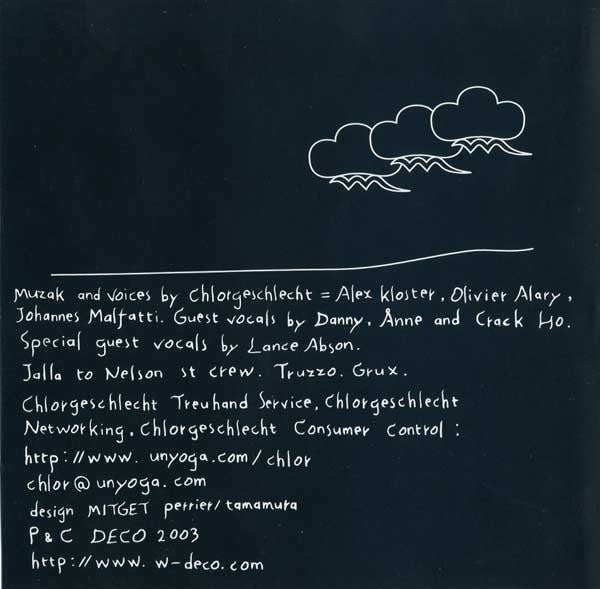 Muzak and voices by Chlorgeschlecht = Alex Kloster, Olivier Alary,
Johannes Malfatti. Guest vocals by Danny, Änne and Crack Ho.
Special guest vocals by Lance Abson.
Jalla to Nelson st crew. Truzzo. Grux.
Chlorgeschlecht Treuhand Service, Chlorgeschlecht
Networking, Chlorgeschlecht Consumer Control :
http://www. unyoga.com/chlor
chlor@unyoga. com
design MITGET perrier/tamamura
P & C DECO 2003
http://www. w-deco.com